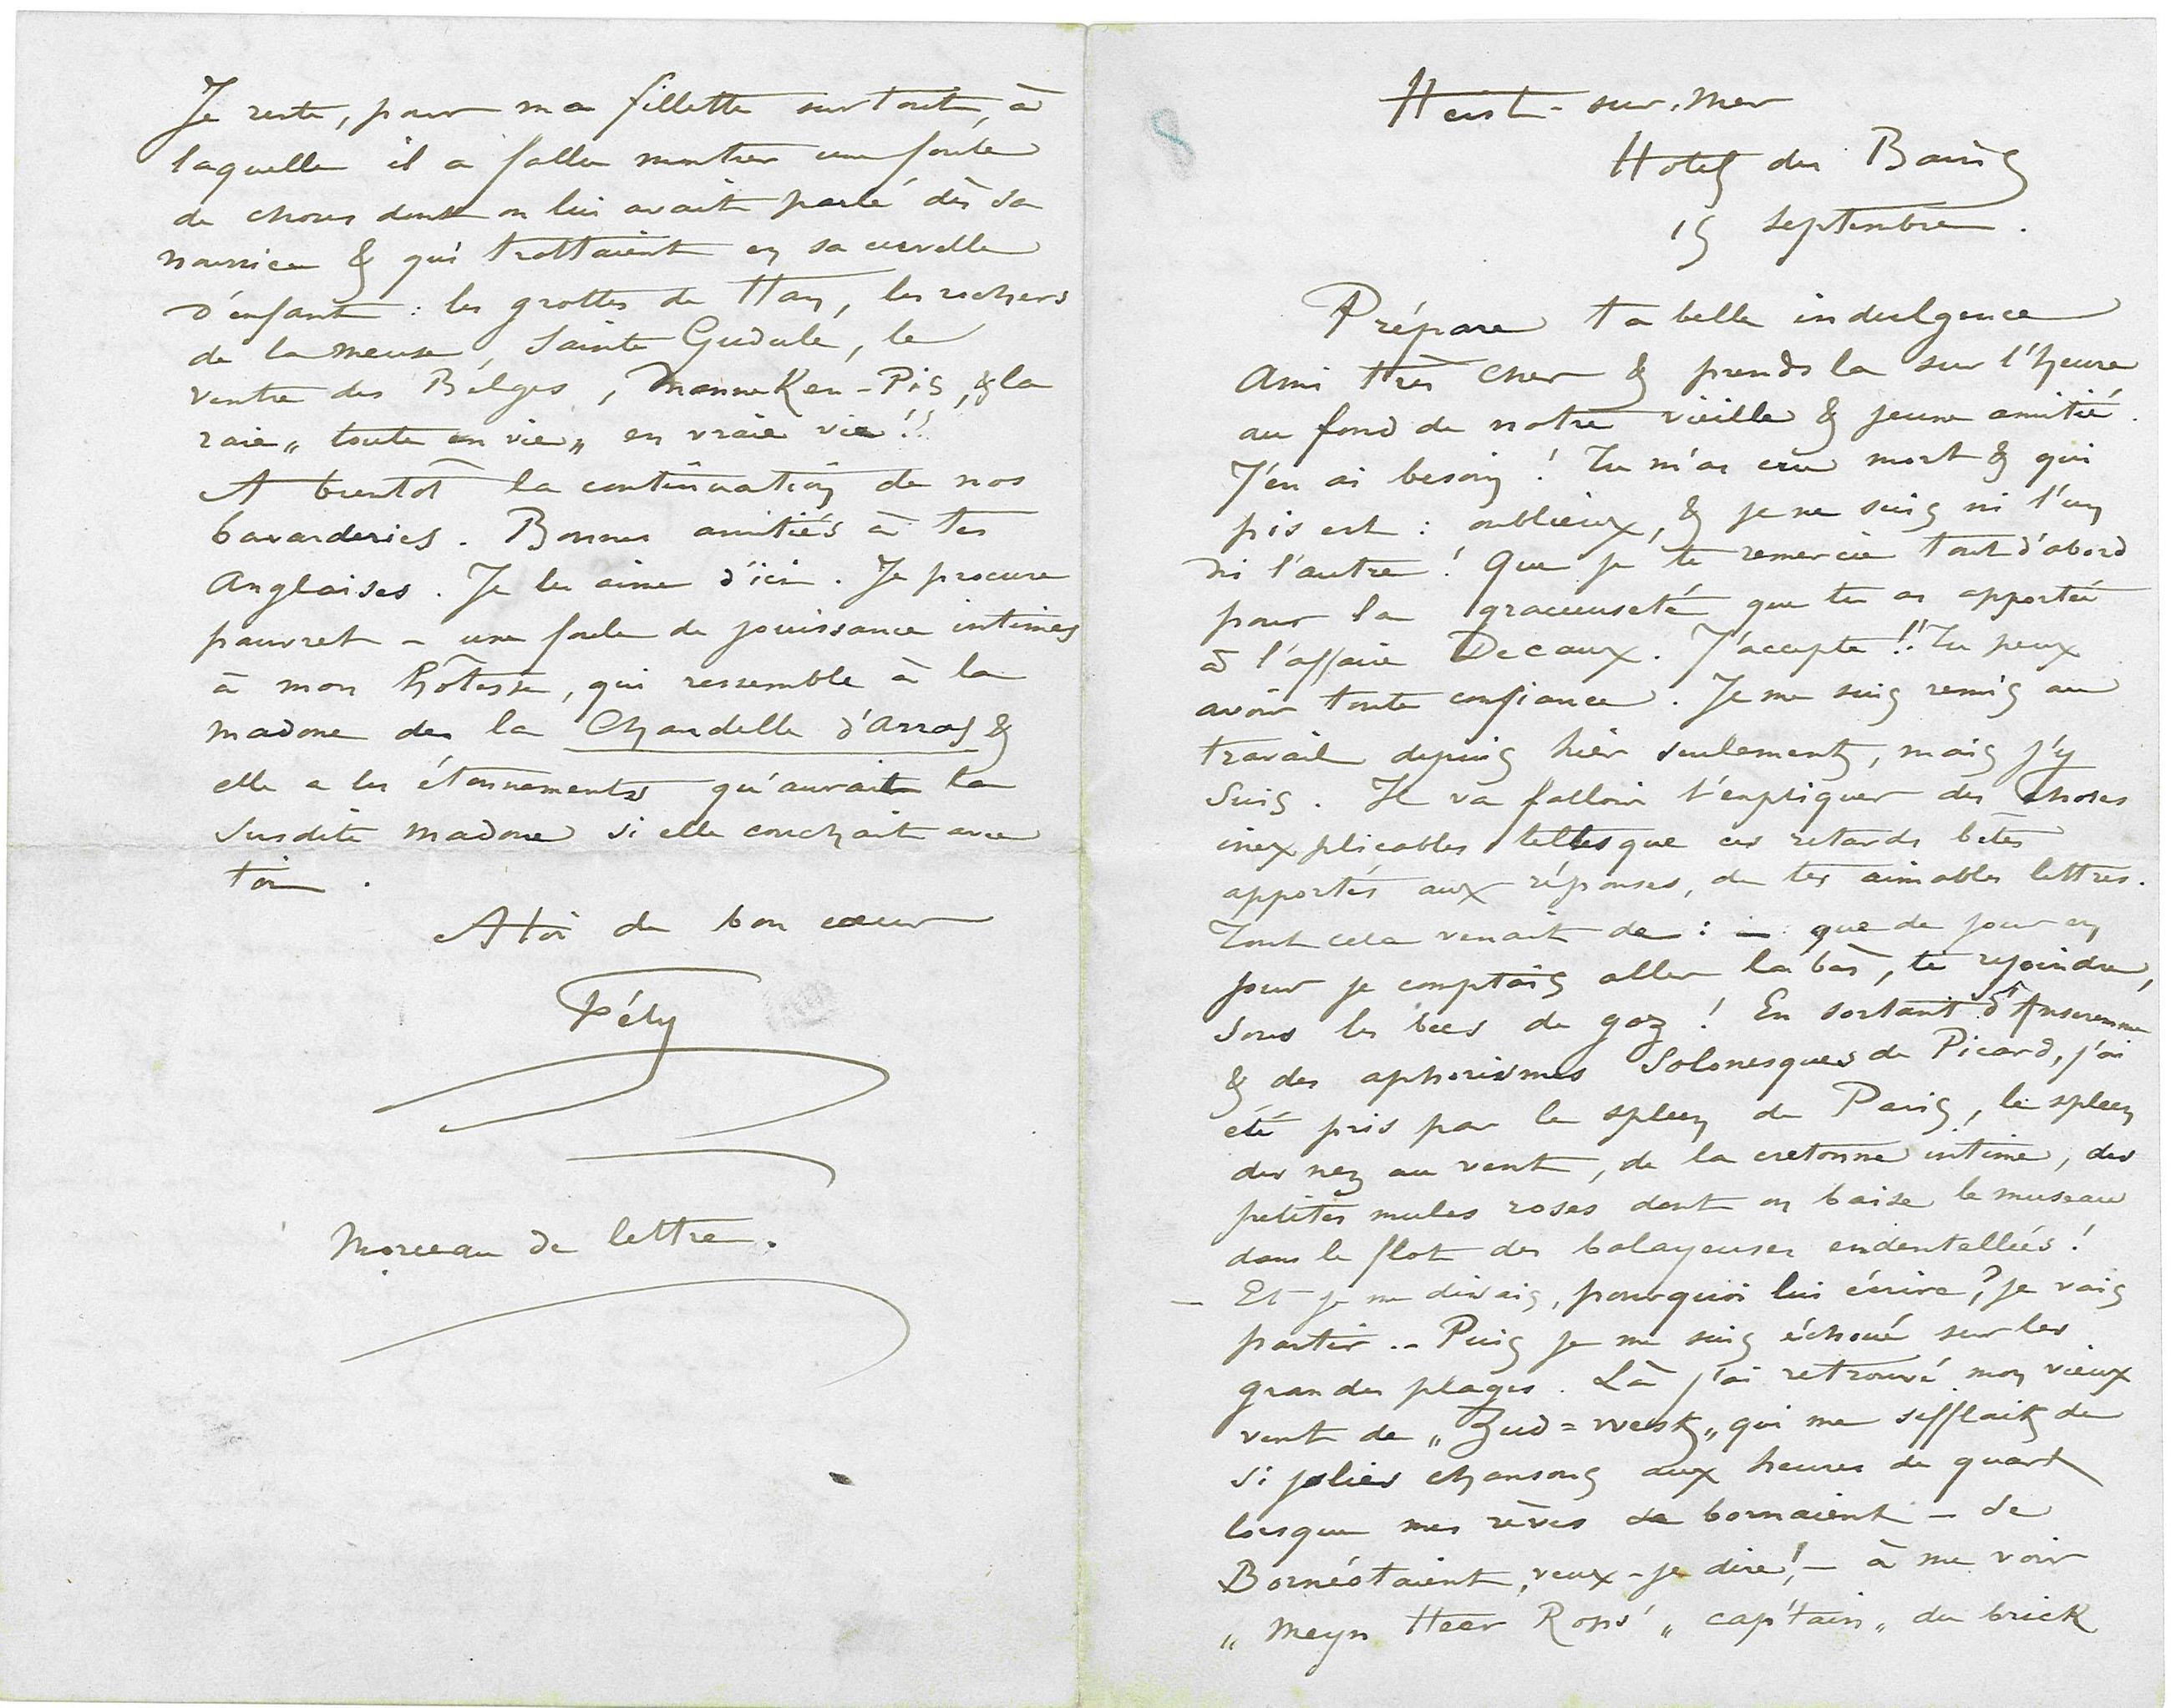 Heist-sur-Mer
Hotel des Bains
15 Septembre.
Prépare ta belle indulgence
Ami très cher & prends la sur l'heure
au fond de notre vieille & jeune amitié.
J'en ai besoin ! Tu m'as cru mort & qui
pis est : oublieux, & je ne suis ni l'un
ni l'autre ! Que je te remercie tout d'abord
pour la gracieuseté que tu as apportée
à l'affaire Decaux. J'accepte !! Tu peux
avoir toute confiance. Je me suis remis au
travail depuis hier seulement, mais j'y
suis. Il va falloir t'expliquer des choses
inexplicables telles que ces retards bêtes
apportés aux réponses, de tes aimables lettres.
Tout cela venait de : – que de jour en
jour je comptais aller là bas, te rejoindre,
sous les becs de gaz ! En sortant d'Anseremme
& des aphorismes Solonesques de Picard, j'ai
été pris par le spleen de Paris, le spleen
des nez au vent, de la cretonne intime, des
petites mules roses dont on baise le museau
dans le flot des balayeuses endentellées !
– Et je me disais, pourquoi lui écrire, ? je vais
partir .. Puis je me suis échoué sur les
grandes plages. Là j'ai retrouvé mon vieux
vent de „Zud=west„ qui me sifflait de
si jolies chansons aux heures de quart
lorsque mes rêves se bornaient – se
Bornéotaient, veux-je dire ! – à me voir
„Meyn Heer Rops' „ cap'tain „ du brick
Je reste, pour ma fillette surtout, à
laquelle il a fallu montrer une foule
de choses dont on lui avait parlé dès sa
nourrice & qui trottaient en sa cervelle
d'enfant : les grottes de Han, les rochers
de la Meuse, Sainte Gudule, le
ventre des Belges, Manneken-Pis, & la
raie „ toute en vie „ en vraie vie !!
A bientôt la continuation de nos
bavarderies. Bonnes amitiés à tes
Anglaises. Je les aime d'ici. Je procure
pauvret – une foule de jouissances intimes
à mon hôtesse, qui ressemble à la
madone de la Chandelle d'Arras &
elle a les étonnements qu'aurait la
susdite madone si elle couchait avec
toi.
A toi de bon cœur
Fély
Morceau de lettre.